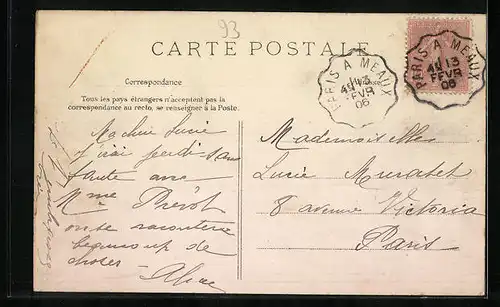 93
CARTE POSTALE
Correspondance
Tous les pays étrangers n'acceptent pas la
correspondance au recto, se renseigner à la Poste.
PARIS A MEAUX
13
FEVR
06
PARIS A MEAUX
13
FEVR
06
Ma chère Lucie
j'irai jeudi sans
faute
Mme
raconterai
beaucoup de
choses
Mademoiselle
Lucie Muratet
8 avenue Victoria
Paris